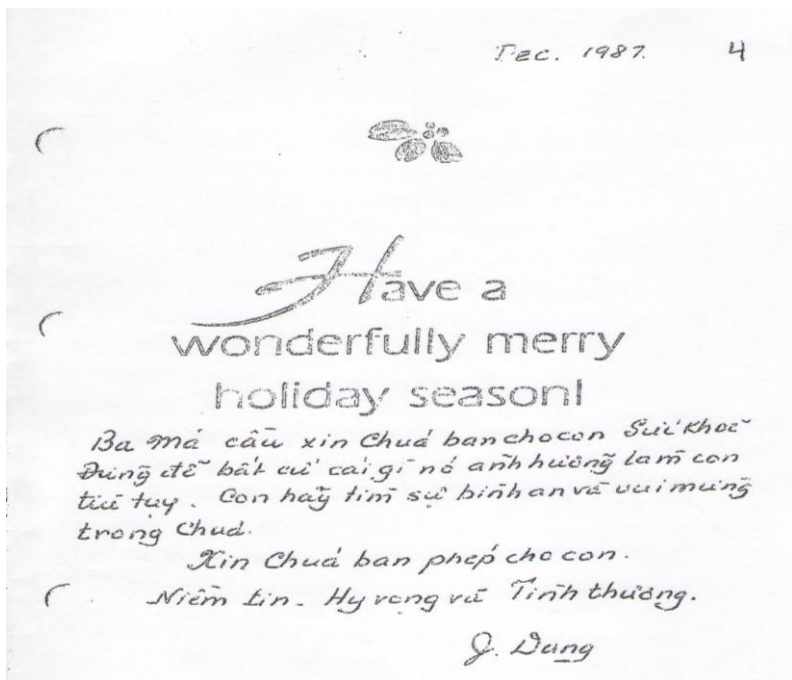 Dec. 1987. 4
Have a
wonderfully merry
holiday season!
Ba Má cầu xin Chuá ban cho con Sức Khoẻ
Đừng để bất cứ cái gì nó ảnh hưởng làm con
tiừ tụy. Con hãy tìm sự bình an và vui mừng
trong Chuá.
Xin Chuá ban phép cho con.
Niềm tin - Hy vọng và Tình thương.
J. Dang